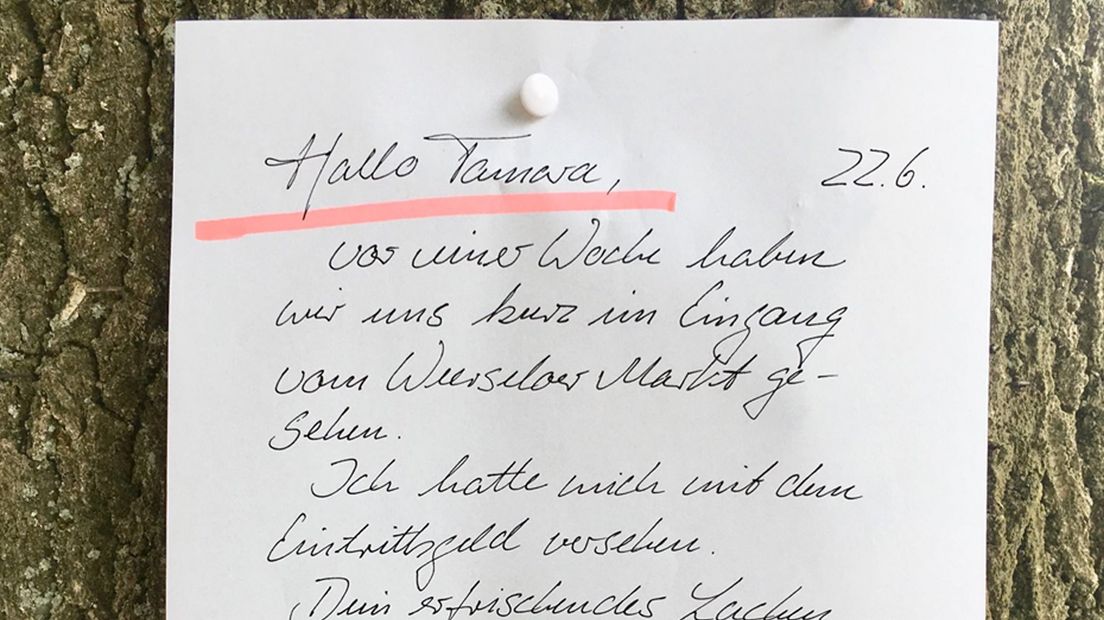 Hallo Tamara, 22.6.
vor einer Woche haben
wir uns kurz im Eingang
vom Weerseloer Markt ge-
sehen.
Ich hatte mich mit dem
Eintrittsgeld versehen.
Dein erfrischendes Lachen